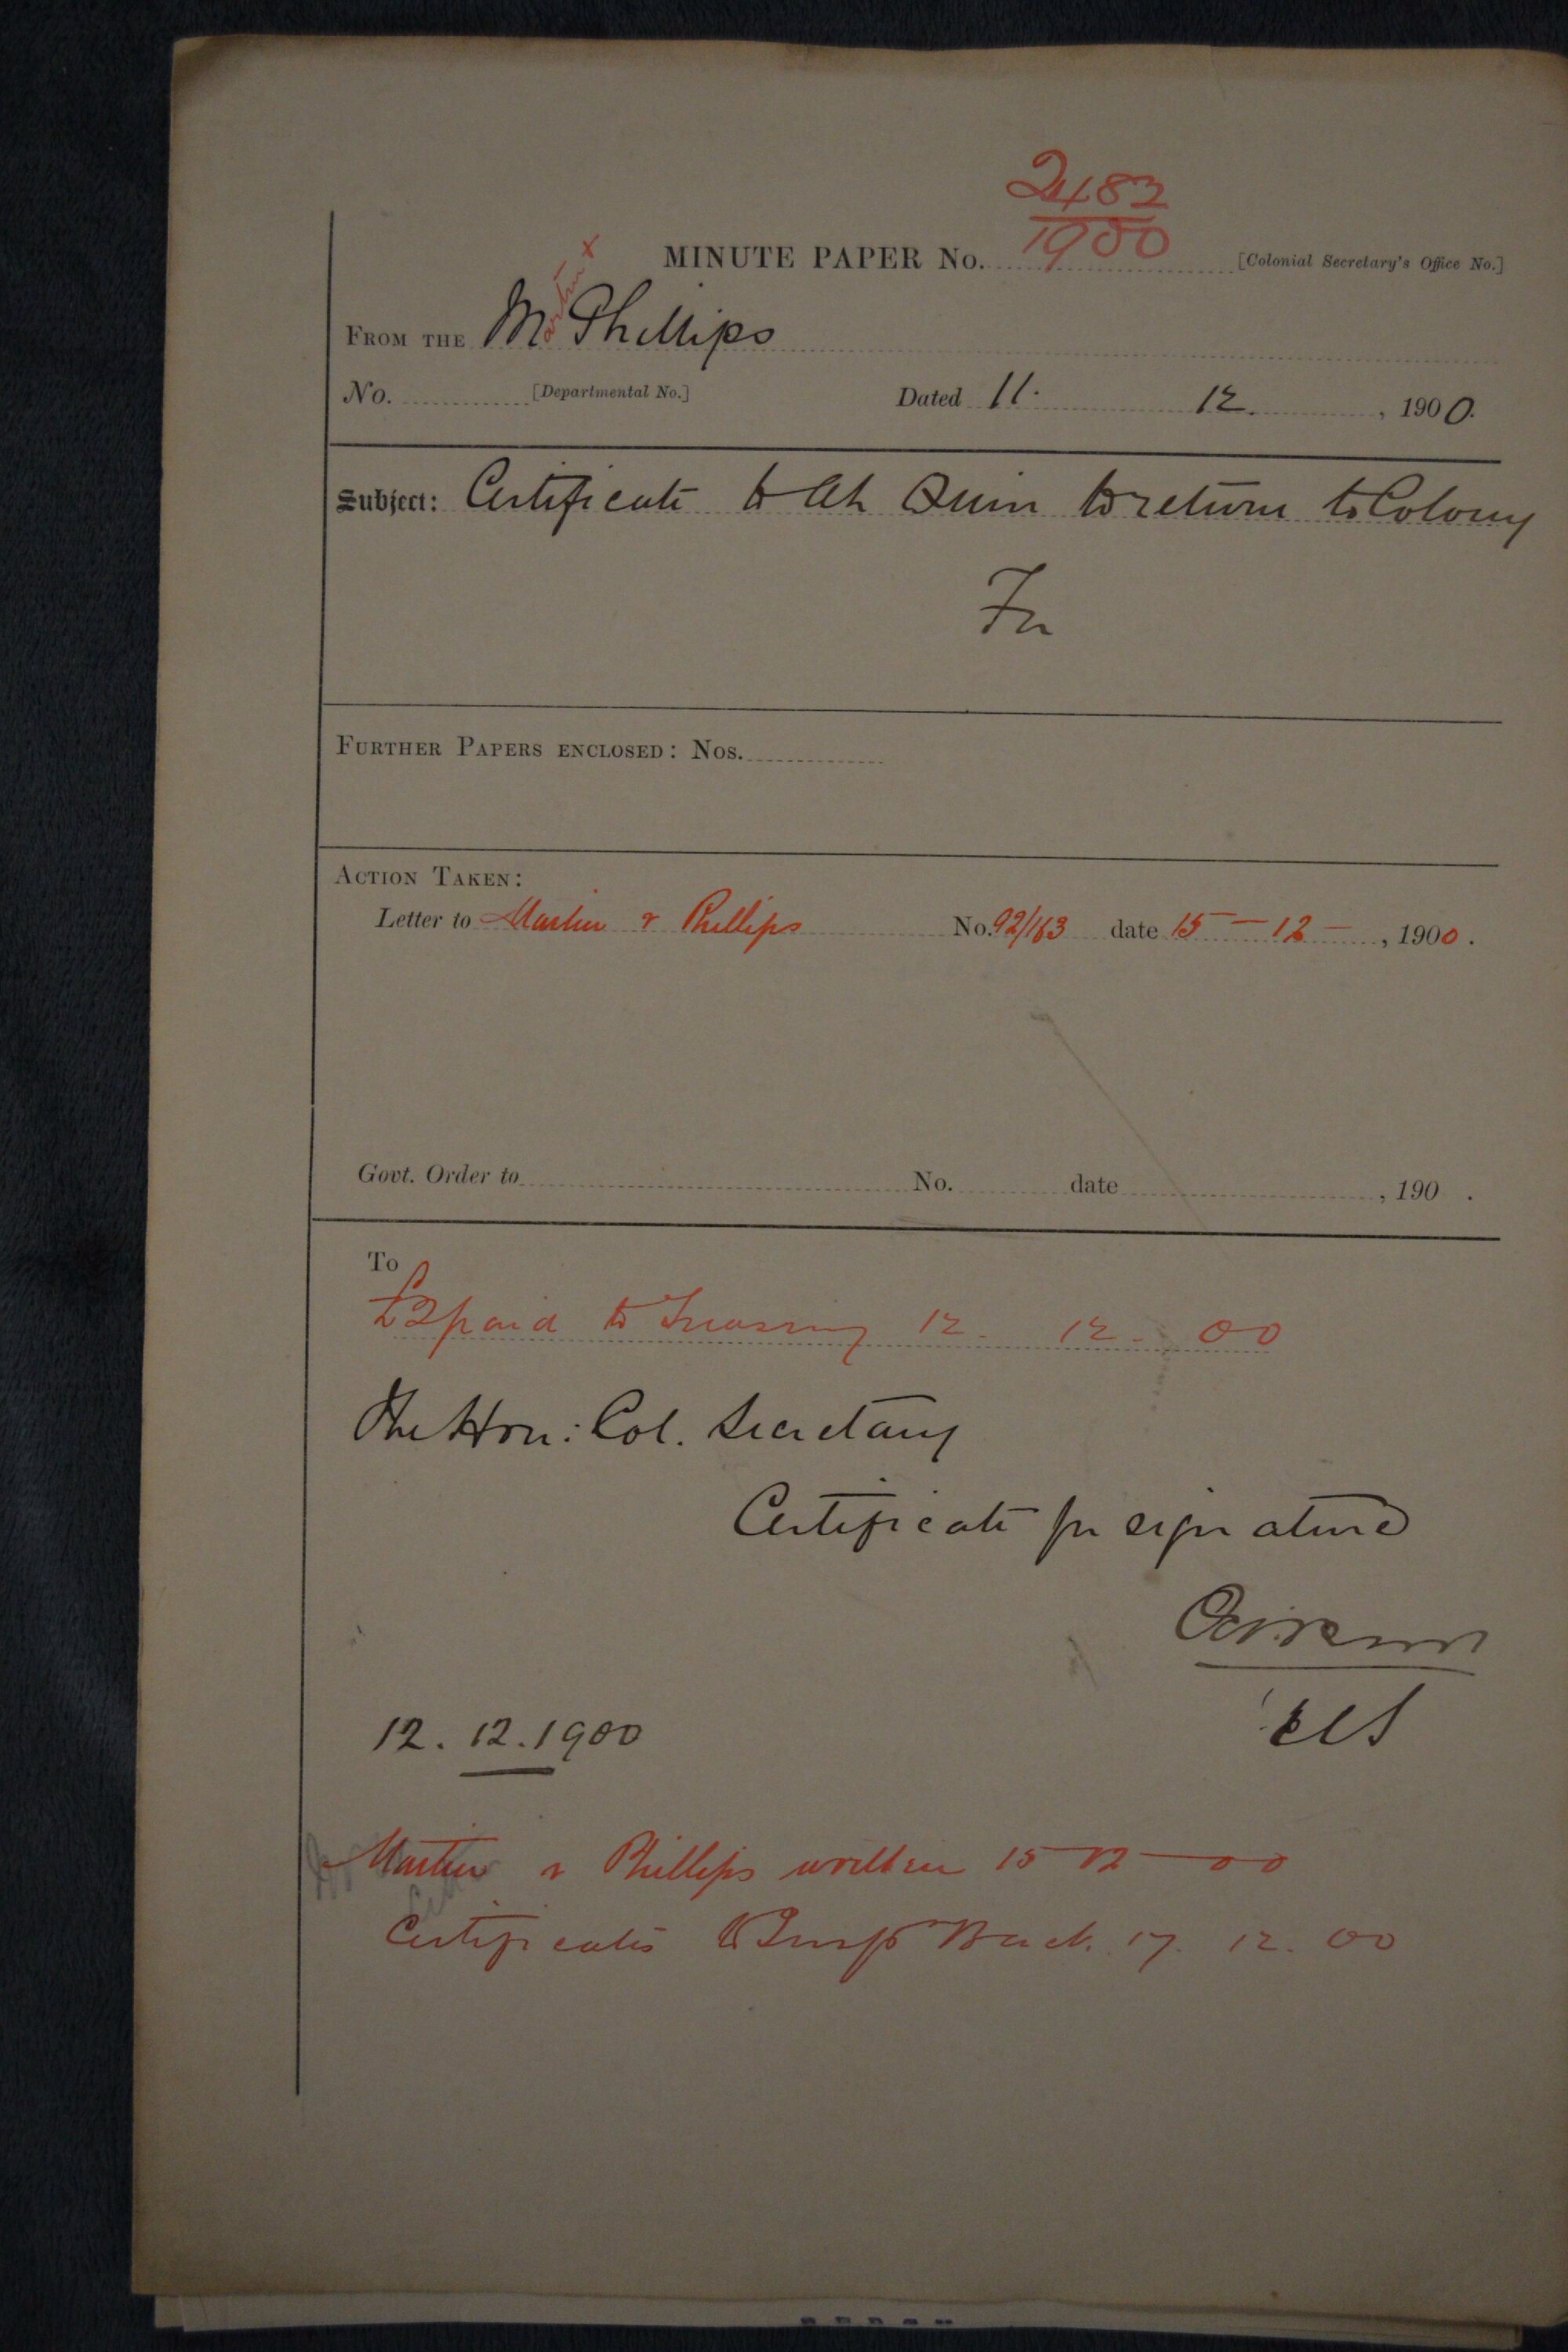 2483
1900
MINUTE PAPER No. [Colonial Secretary's Office No.]
artin &
FROM THE M Phillips
No. [Departmental No.] Dated 11. 12. , 1900.
Subject: Certificate to Ah Quin to return to Colony
FURTHER PAPERS ENCLOSED: Nos.
ACTION TAKEN:
Letter to Martin & Phillips No. 92/163 date 15 - 12 - , 1900.
Govt. Order to No. date , 190 .
To
£2 paid to Treasury 12. 12. 00
The Hon: Col. Secretary
Certificate for signature
12. 12. 1900
Martin & Phillips written 15 12 - 00
Certificates to Insp 17. 12. 00